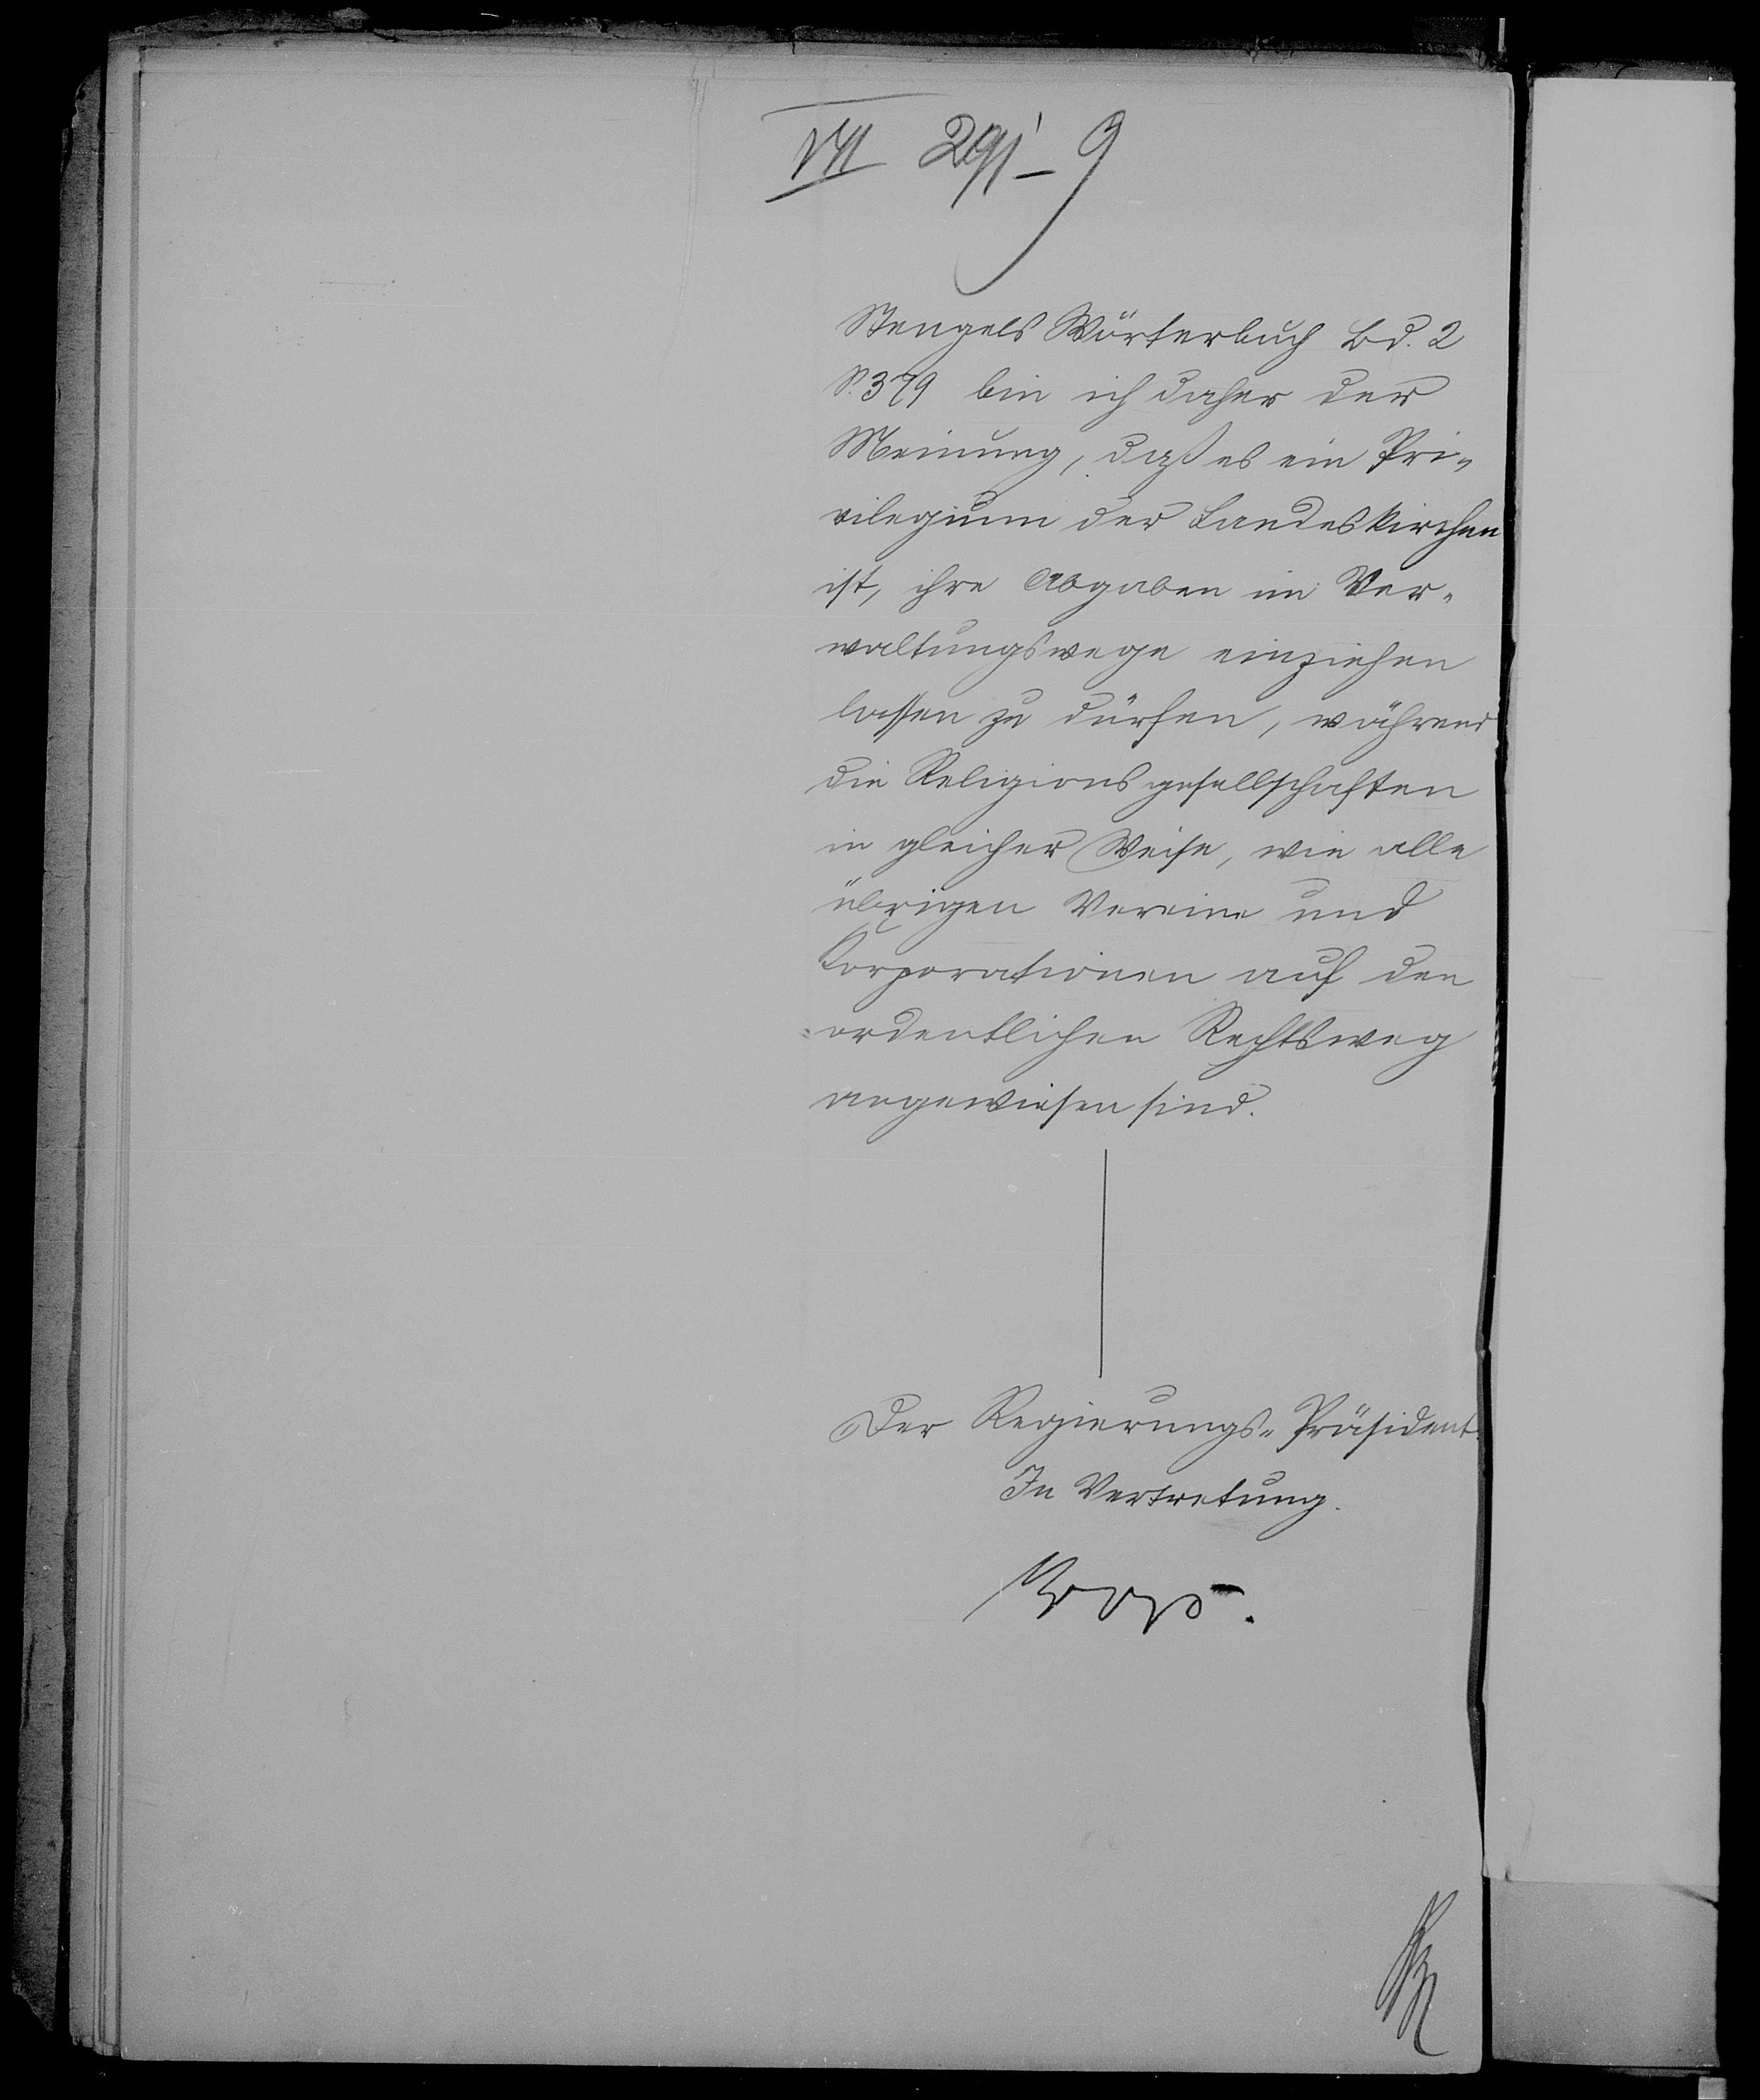 VII 291 - 9
Stengels Wörterbuch Bd. 2
S. 379 bin ich daher der
Meinung, daß es ein Pri-
vilegium der Landeskirchen
ist, ihre Abgaben im Ver-
waltungswege einziehen
lassen zu dürfen, während
die Religionsgesellschaften
in gleicher Weise, wie alle
übrigen Vereine und
Korporationen auf den
ordentlichen Rechtsweg
angewiesen sind.
Der Regierungs-Präsident.
In Vertretung.